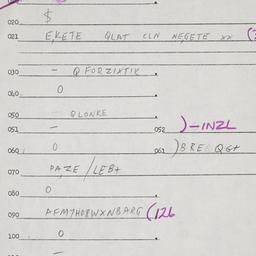 020 $
021 EKETE QLAT CLN NEGETE XX (
030 - Q FORZIXTIX .
040 0
050 QLONKE .
051 - 052 )-INZL
060 0 061 )BRE QG+
070 PAZE/LEB+
080 0
090 AFM7HOBWXNBARG (126
100 0